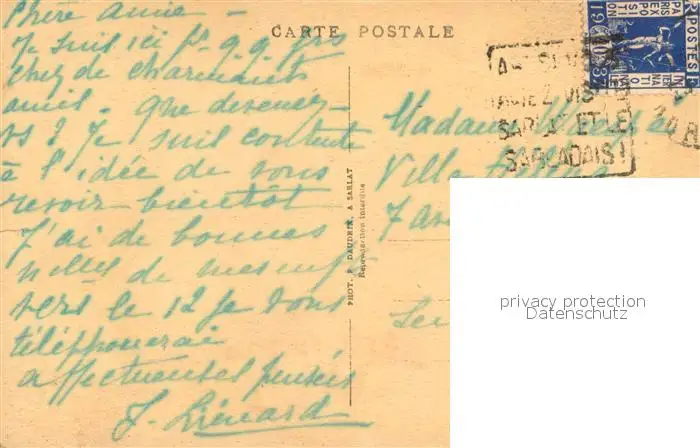 Chère Amie -
CARTE POSTALE
Je suis ici pr q.q. jrs
chez de charmants
amis - que devenez-
vs? Je suis contente
à l'idée de vous
revoir bientôt
J'ai de bonnes
nlles de mes
vers le 12 je vous
téléphonerai
affectueuses pensées
J. Liénard
PHOT. P. DAUDRIX, A SARLAT
Reproduction interdite
POSTES
1937
SARLAT ET LE
SARLADAIS!
Madame
Villa
7 Av
privacy protection
Datenschutz